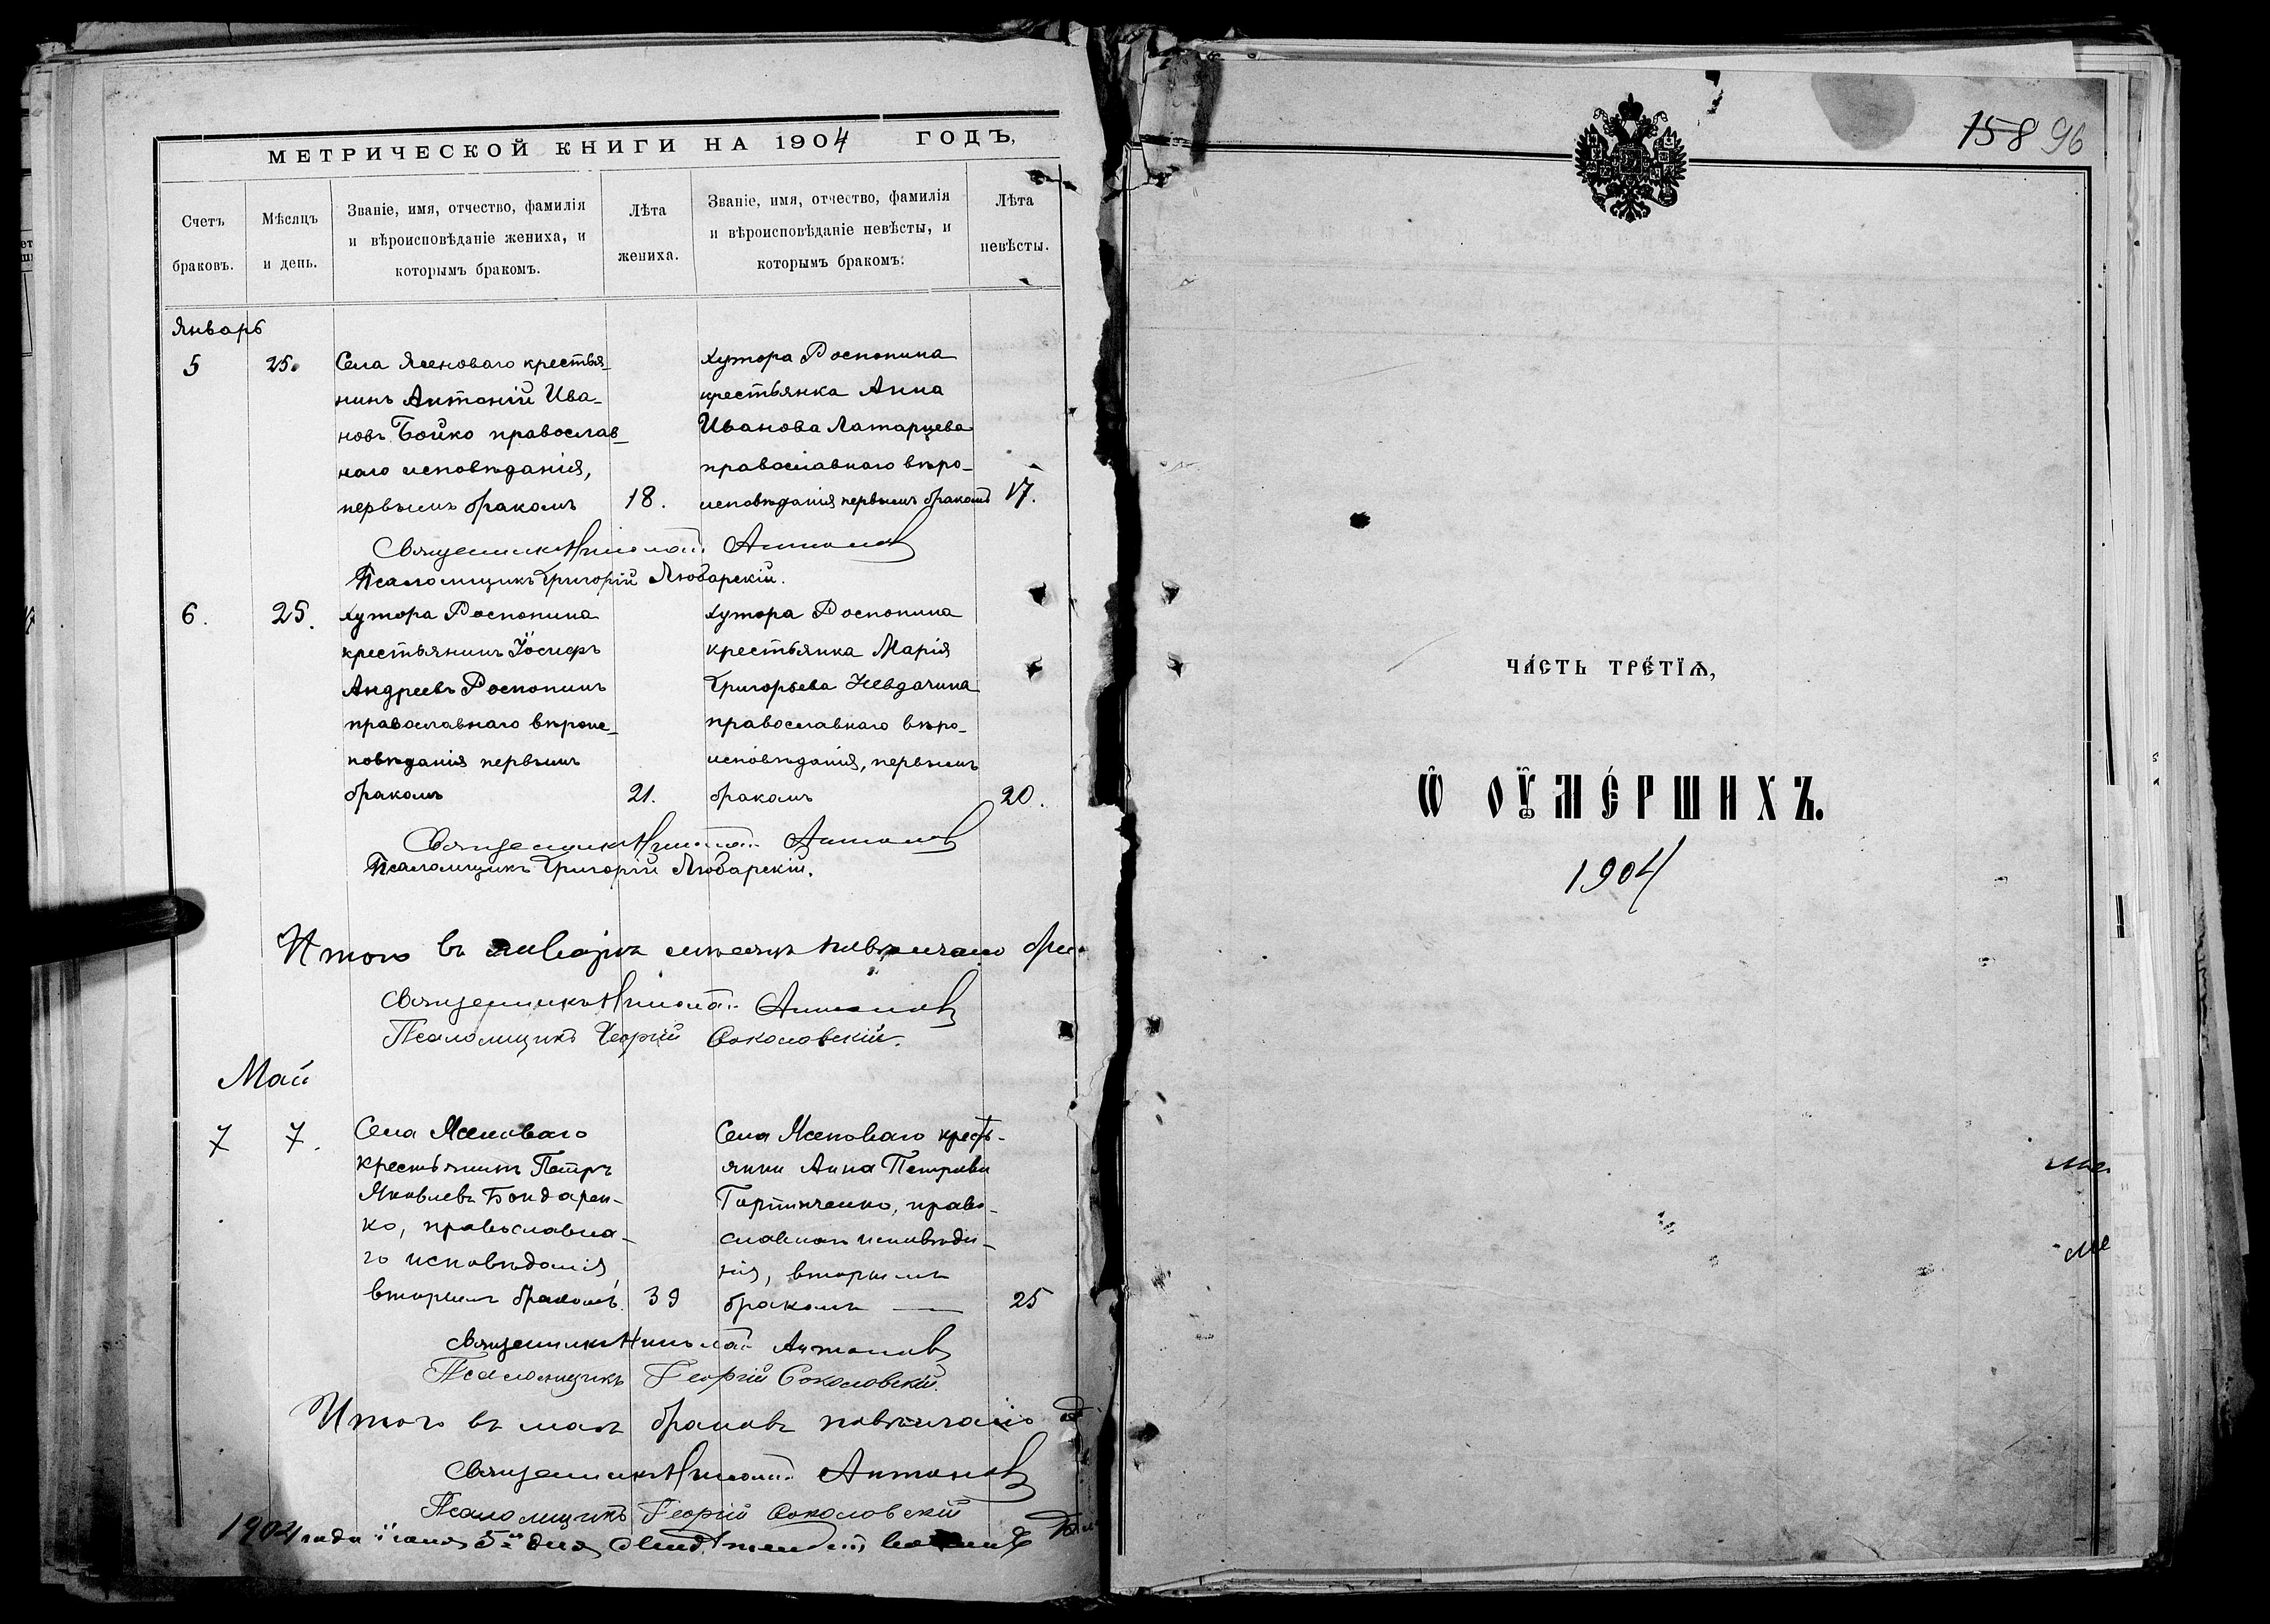 МЕТРИЧЕСКОЙ КНИГИ НА 1904 ГОДЪ,
Счетъ браковъ.
Мѣсяцъ и день.
Званіе, имя, отчество, фамилія
и вѣроисповѣданіе жениха, и
которымъ бракомъ.
Лѣта жениха.
Званіе, имя, отчество, фамилія
и вѣроисповѣданіе невѣсты, и
которымъ бракомъ.
Лѣта невѣсты.
Январь
5
25.
Села Ясеноваго крестья-
нинъ Антоній Ива-
новъ Бойко православ-
наго исповѣданія,
первымъ бракомъ
18.
Хутора Роспопина
крестьянка Анна
Иванова Латарцева
православнаго вѣро-
исповѣданія первымъ бракомъ
17.
Священникъ Николай Антонов
Псаломщикъ Григорій Любарскій.
6.
25.
Хутора Роспопина
крестьянинъ Іосифъ
Андреевъ Роспопинъ
православнаго вѣроис-
повѣданія первымъ
бракомъ
21.
Хутора Роспопина
крестьянка Марія
Григорьева Невдачина
православнаго вѣро-
исповѣданія, первымъ
бракомъ
20.
Священникъ Николай Антонов
Псаломщикъ Григорій Любарскій.
Итого въ январѣ мѣсяцѣ повѣнчано
Священникъ Николай Антонов
Псаломщикъ Георгій Соколовскій.
Май
7
7.
Села Ясеноваго
крестьянинъ Петръ
Яковлевъ Бондарен-
ко, православна-
го исповѣданія
вторымъ бракомъ.
39
Села Ясеноваго крест-
янки Анна Петрова
право-
славнаго исповѣда-
нія, вторымъ
бракомъ —
25
Священникъ Николай Антонов
Псаломщикъ Георгій Соколовскій.
Итого въ маѣ браковъ повѣнчано
Священникъ Николай Антонов
Псаломщикъ Георгій Соколовскій
1904 года іюня 5 дня
158 96
ЧА́СТЬ ТРЕ́ТЇѦ,
Ѽ ОУ҆МЕ́РШИХЪ.
1904